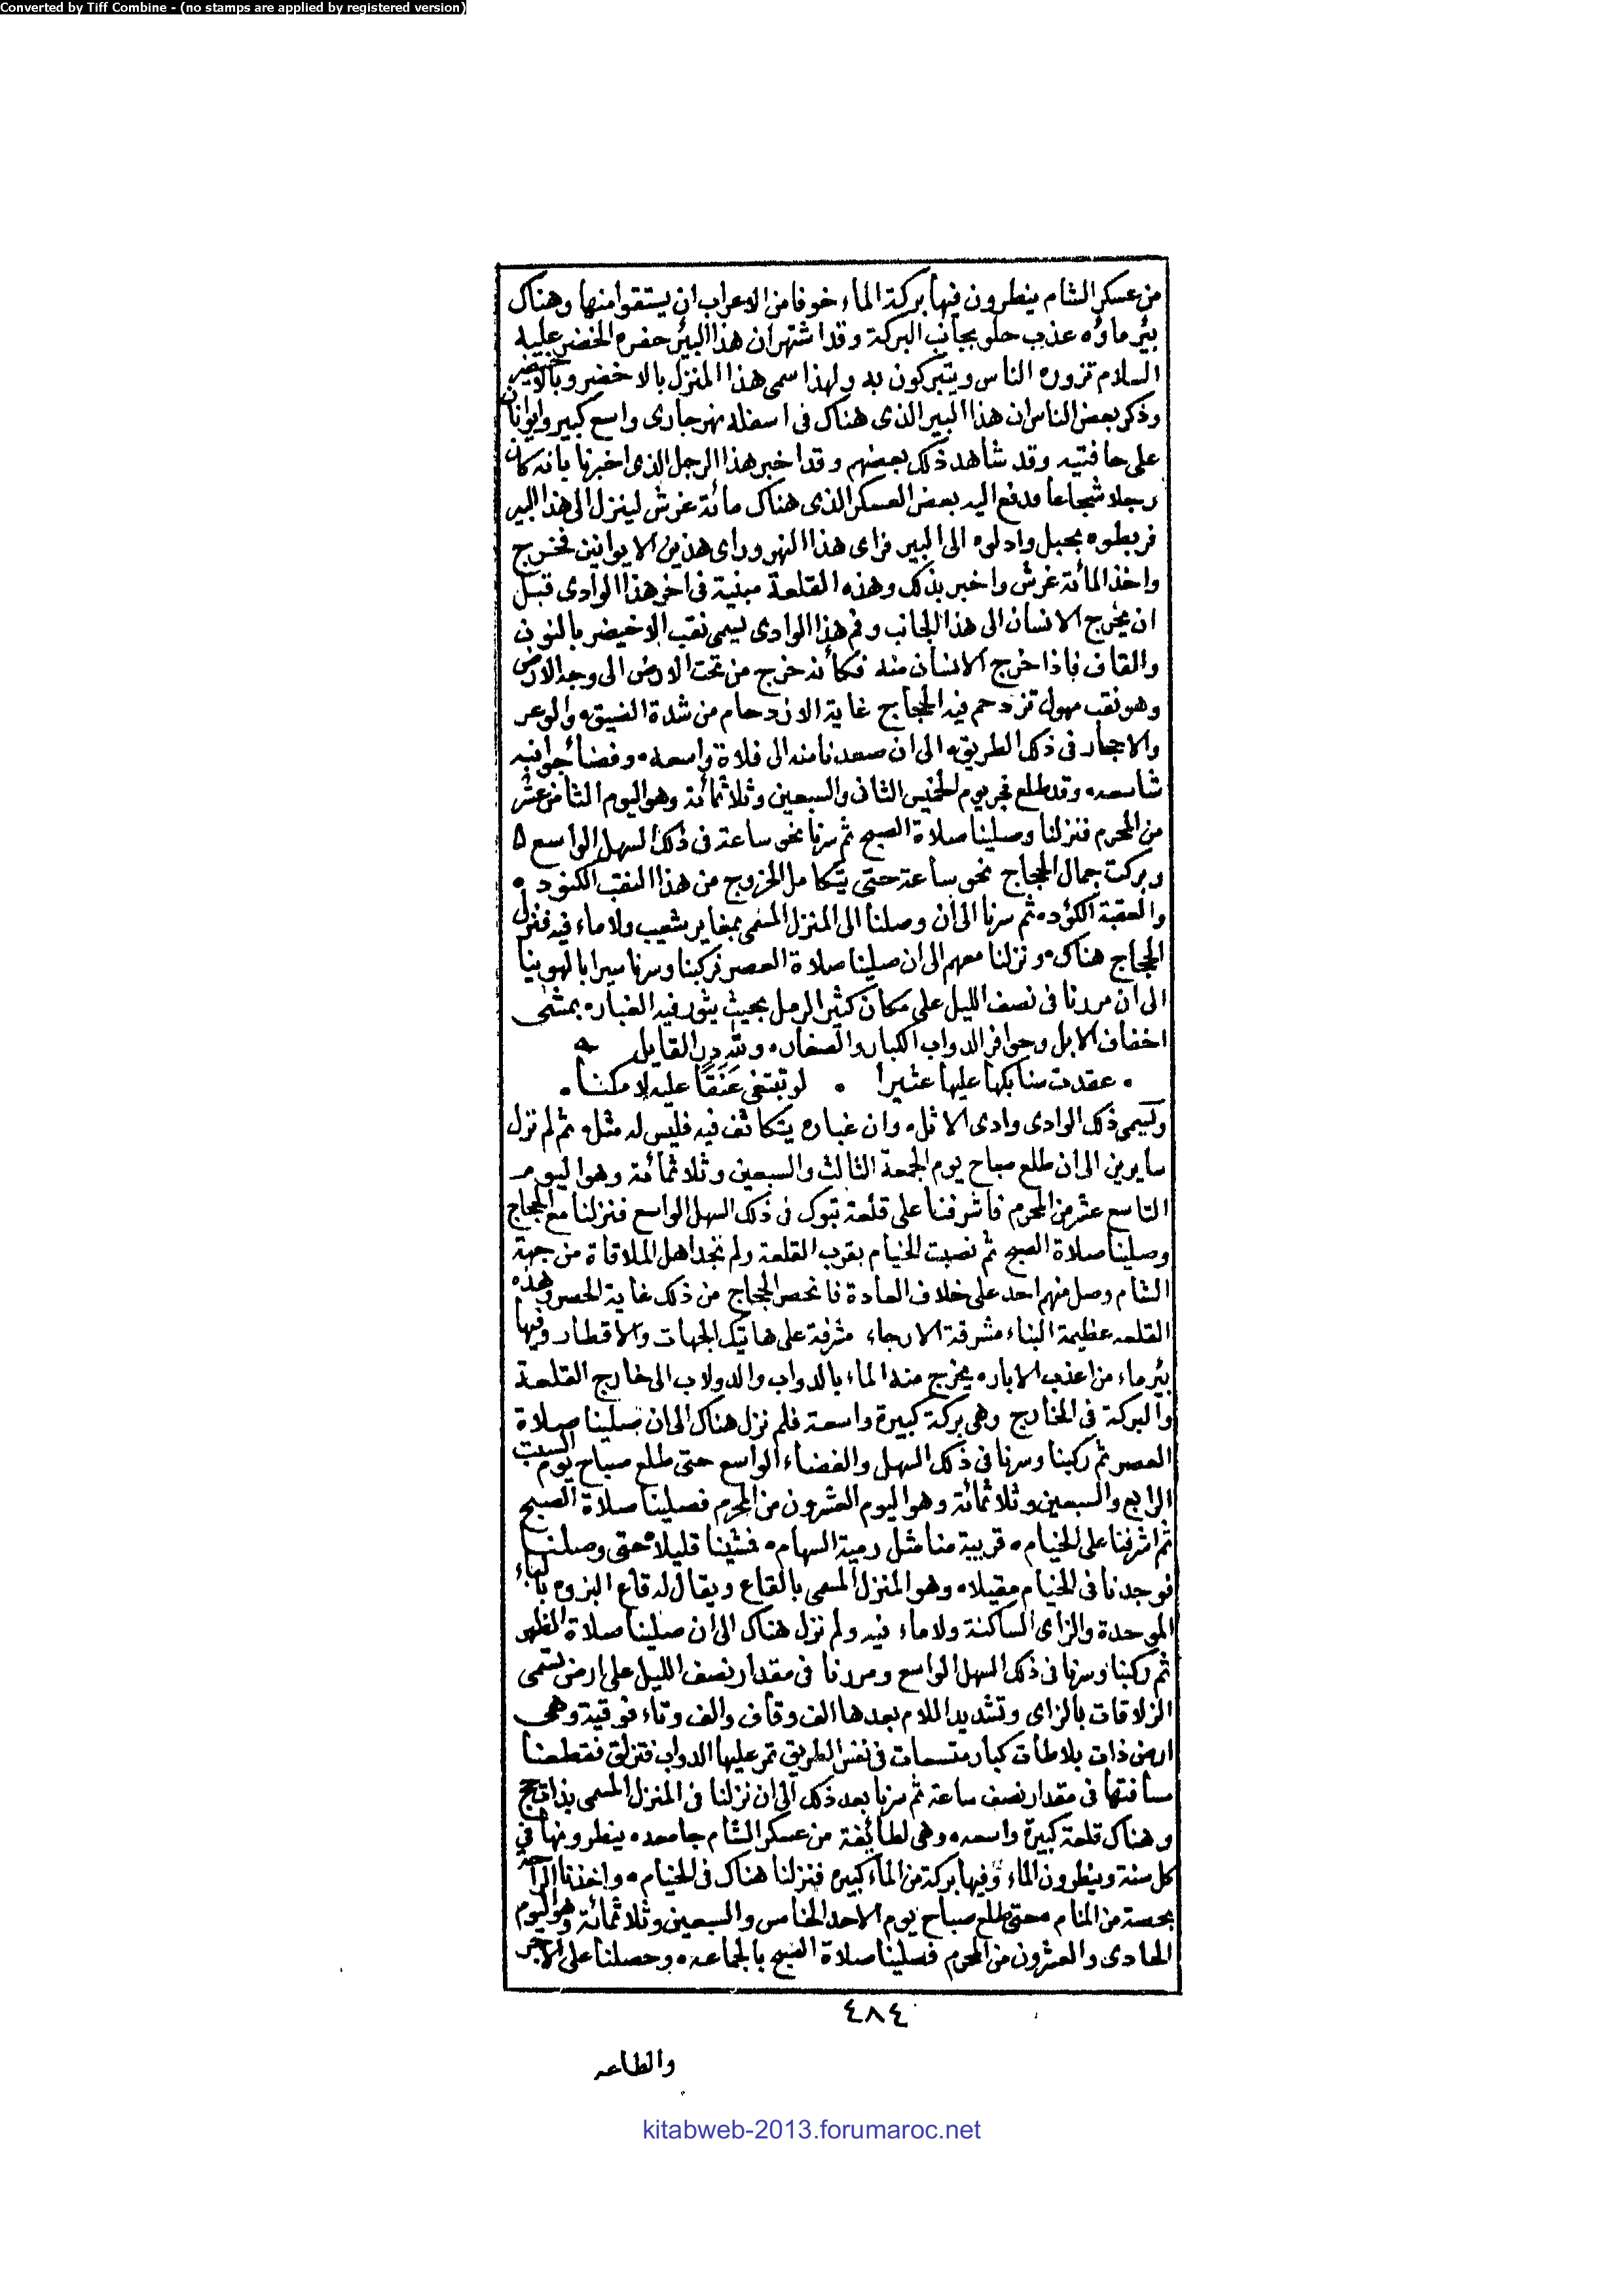 Converted by Tiff Combine - (no stamps are applied by registered version)
من عسكر الشام ينطرون فيها بركة الماء خوفا من الاعراب ان يستقوا منها وهناك
بئر ماؤه عذب حلو بجانب البركة وقد اشتهر ان هذا البئر حفره الخضر عليه
السلام تزوره الناس ويتبركون به ولهذا سمى هذا المنزل بالاخضر وبالاخيضر
وذكر بعض الناس ان هذا البير الذى هناك فى اسفله نهر جارى واسع كبير وايوانان
على حافتيه وقد شاهد ذلك بعضهم وقد اخبر هذا الرجل الذى اخبرنا بانه كان
رجلا شجاعا فدفع اليه بعض العسكر الذى هناك مائة غرش لينزل الى هذا البير
فربطوه بحبل وادلوه الى البير فراى هذا النهر وراى هذين الايوانين فخرج
واخذ المائة غرش واخبر بذلك وهذه القلعة مبنية فى اخر هذا الوادى قبل
ان يخرج الانسان الى هذا الجانب وفم هذا الوادى يسمى نقب الاخيضر بالنون
والقاف فاذا خرج الانسان منه فكأنه خرج من تحت الارض الى وجه الارض
وهو نقب مهول تزدحم فيه الحجاج غاية الازدحام من شدة الضيق والوعر
والاحجار فى ذلك الطريق الى ان صعدنا منه الى فلاة واسعه وفضاء جوانبه
شاسعه وقد طلع فجر يوم الخميس الثانى والسبعين وثلاثمائة وهو اليوم الثامن عشر
من المحرم فنزلنا وصلينا صلاة الصبح ثم سرنا نحو ساعة فى ذلك السهل الواسع ه
وبركت جمال الحجاج نحو ساعة حتى يتكامل الخروج من هذا النقب الكنود
والعقبة الكؤد ثم سرنا الى ان وصلنا الى المنزل المسمى بمغاير شعيب ولا ماء فيه فنزل
الحجاج هناك ونزلنا معهم الى ان صلينا صلاة العصر فركبنا وسرنا سيرا بالهوينا
الى ان مررنا فى نصف الليل على مكان كثير الرمل بحيث يثور فيه الغبار بمشى
اخفاف الابل وحوافر الدواب الكبار والصغار ولله در القايل
عقدت سنابكها عليها عثيرا لو تبتغى عنقا عليه لامكنا
ويسمى ذلك الوادى وادى الاثل وان غباره يتكاثف فيه فليس له مثل ثم لم نزل
سايرين الى ان طلع صباح يوم الجمعة الثالث والسبعين وثلاثمائة وهو اليوم
التاسع عشر من المحرم فاشرفنا على قلعة تبوك فى ذلك السهل الواسع فنزلنا مع الحجاج
وصلينا صلاة الصبح ثم نصبت الخيام بقرب القلعة ولم نجد اهل الملاقاة من جهة
الشام وصل منهم احد على خلاف العادة فانحصر الحجاج من ذلك غاية الحصر وهذه
القلعه عظيمة البناء مشرقة الارجاء مشرفة على هاتيك الجهات والاقطار وفيها
بئر ماء من اعذب الابار يخرج منه الماء بالدواب والدولاب الى خارج القلعة
والبركة فى الخارج وهى بركة كبيرة واسعة فلم نزل هناك الى ان صلينا صلاة
العصر ثم ركبنا وسرنا فى ذلك السهل والفضاء الواسع حتى طلع صباح يوم السبت
الرابع والسبعين وثلاثمائة وهو اليوم العشرون من المحرم فصلينا صلاة الصبح
ثم اشرفنا على الخيام قريبة منا مثل رمية السهام فمشينا قليلا حتى وصلنا
فوجدنا فى الخيام مقيلا وهو المنزل المسمى بالقاع ويقال له قاع البزوه بالباء
الموحدة والزاى الساكنة ولا ماء فيه ولم نزل هناك الى ان صلينا صلاة الظهر
ثم ركبنا وسرنا فى ذلك السهل الواسع ومررنا فى مقدار نصف الليل على ارض تسمى
الزلاقات بالزاى وتشديد اللام بعدها الف وقاف والف وتاء فوقية وهى
ارض ذات بلاطات كبار متسعات فى نفس الطريق تمر عليها الدواب فتزلق فقطعنا
مسافتها فى مقدار نصف ساعة ثم سرنا بعد ذلك الى ان نزلنا فى المنزل المسمى بذات حج
وهناك قلعة كبيرة واسعه وهى لطائفة من عسكر الشام جامعه ينطرونها فى
كل سنة وينطرون الماء وفيها بركة من الماء كبيره فنزلنا هناك فى الخيام واخذنا الراحة
بحصة من المنام حتى طلع صباح يوم الاحد الخامس والسبعين وثلاثمائة وهو اليوم
الحادى والعشرون من المحرم فصلينا صلاة الصبح بالجماعه وحصلنا على الاجر
٤٨٤
والطاعه
kitabweb-2013.forumaroc.net